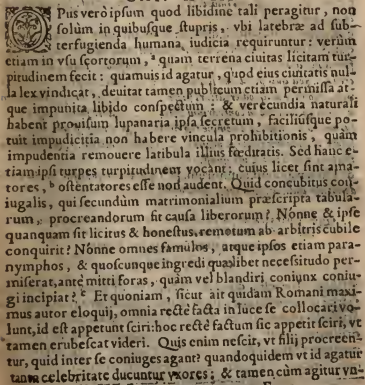 OPus verò ipsum quod libidine tali peragitur, non
solùm in quibusque stupris, vbi latebræ ad sub-
terfugienda humana iudicia requiruntur: verùm
etiam in vsu scortorum, ª quam terrena ciuitas licitam tur-
pitudinem fecit: quamuis id agatur, quod eius ciuitatis nul-
la lex vindicat, deuitat tamen publicum etiam permissa at-
que impunita libido conspectum: & verecundia naturali
habent prouisum lupanaria ipsa secretum, faciliusque po-
tuit impudicitia non habere vincula prohibitionis, quàm
impudentia remouere latibula illius fœditatis. Sed hanc e-
tiam ipsi turpes turpitudinem vocant, cuius licet sint ama-
tores, ᵇ ostentatores esse non audent. Quid concubitus con-
iugalis, qui secundùm matrimonialium præscripta tabula-
rum, procreandorum sit causa liberorum? Nónne & ipse
quanquam sit licitus & honestus, remotum ab arbitris cubile
conquirit? Nónne omnes famulos, atque ipsos etiam para-
nymphos, & quoscunque ingredi quælibet necessitudo per-
miserat, antè mitti foras, quàm vel blandiri coniunx coniu-
gi incipiat? ᶜ Et quoniam, sicut ait quidam Romani maxi-
mus autor eloquij, omnia rectè facta in luce se collocari vo-
lunt, id est appetunt sciri: hoc rectè factum sic appetit sciri, vt
tamen erubescat videri. Quis enim nescit, vt filij procreen-
tur, quid inter se coniuges agant? quandoquidem vt id agatur
tanta celebritate ducuntur vxores; & tamen cùm agitur vn-